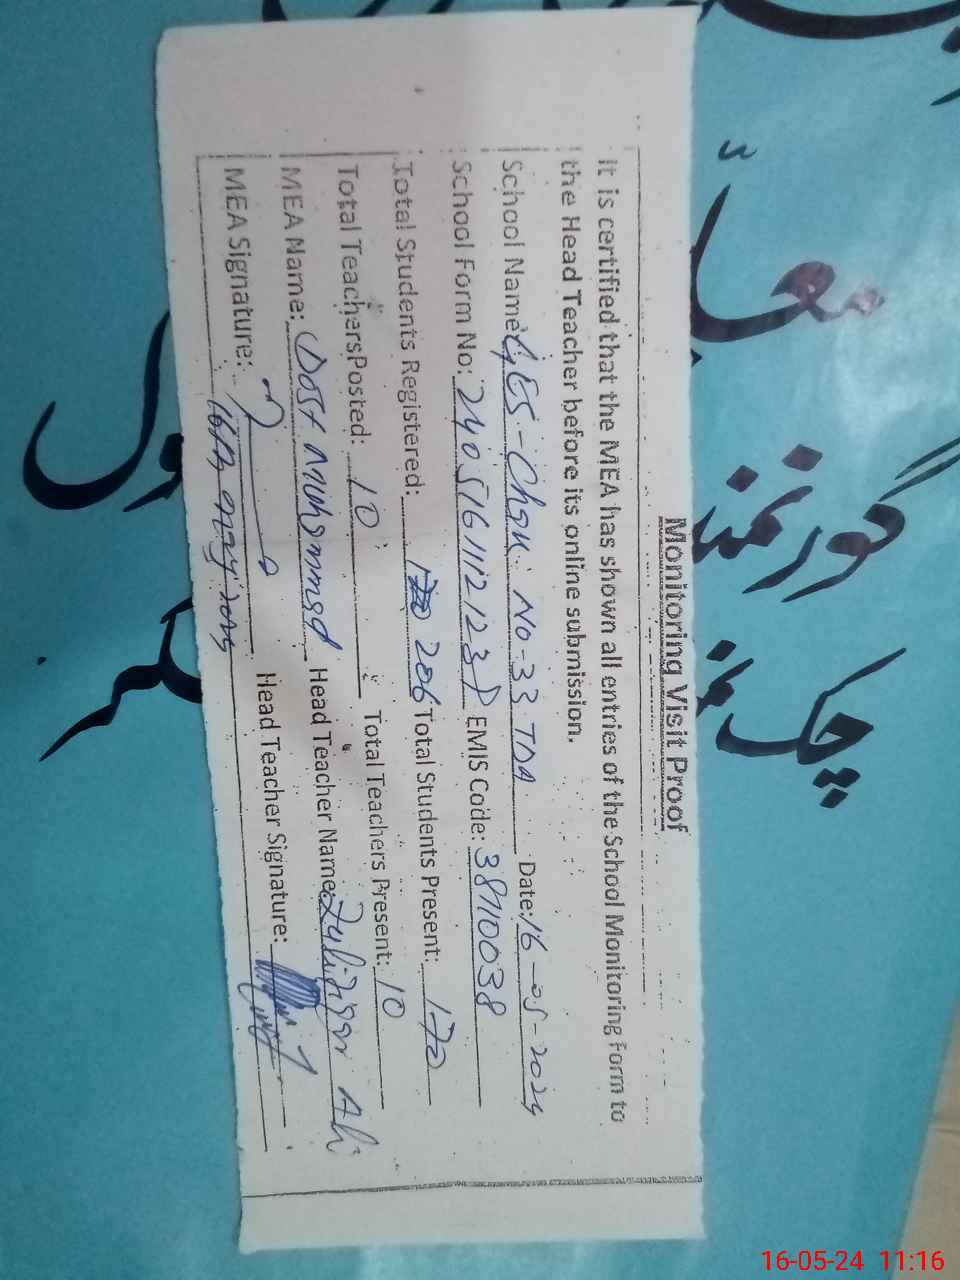 Monitoring Visit Proof
It is certified that the MEA has shown all entries of the School Monitoring Form to
the Head Teacher before its online submission.
School Name: GES-Chak No-33 TDA Date: 16-05-2024
School Form No: EMIS Code: 38710038
Total Students Registered: 206 Total Students Present: 170
Total Teachers Posted: 10 Total Teachers Present: 10
MEA Name: Dost Muhammad Head Teacher Name: Zulfiqar Ali
MEA Signature: Head Teacher Signature:
16th may
گورنمنٹ
چک نمبر
16-05-24 11:16